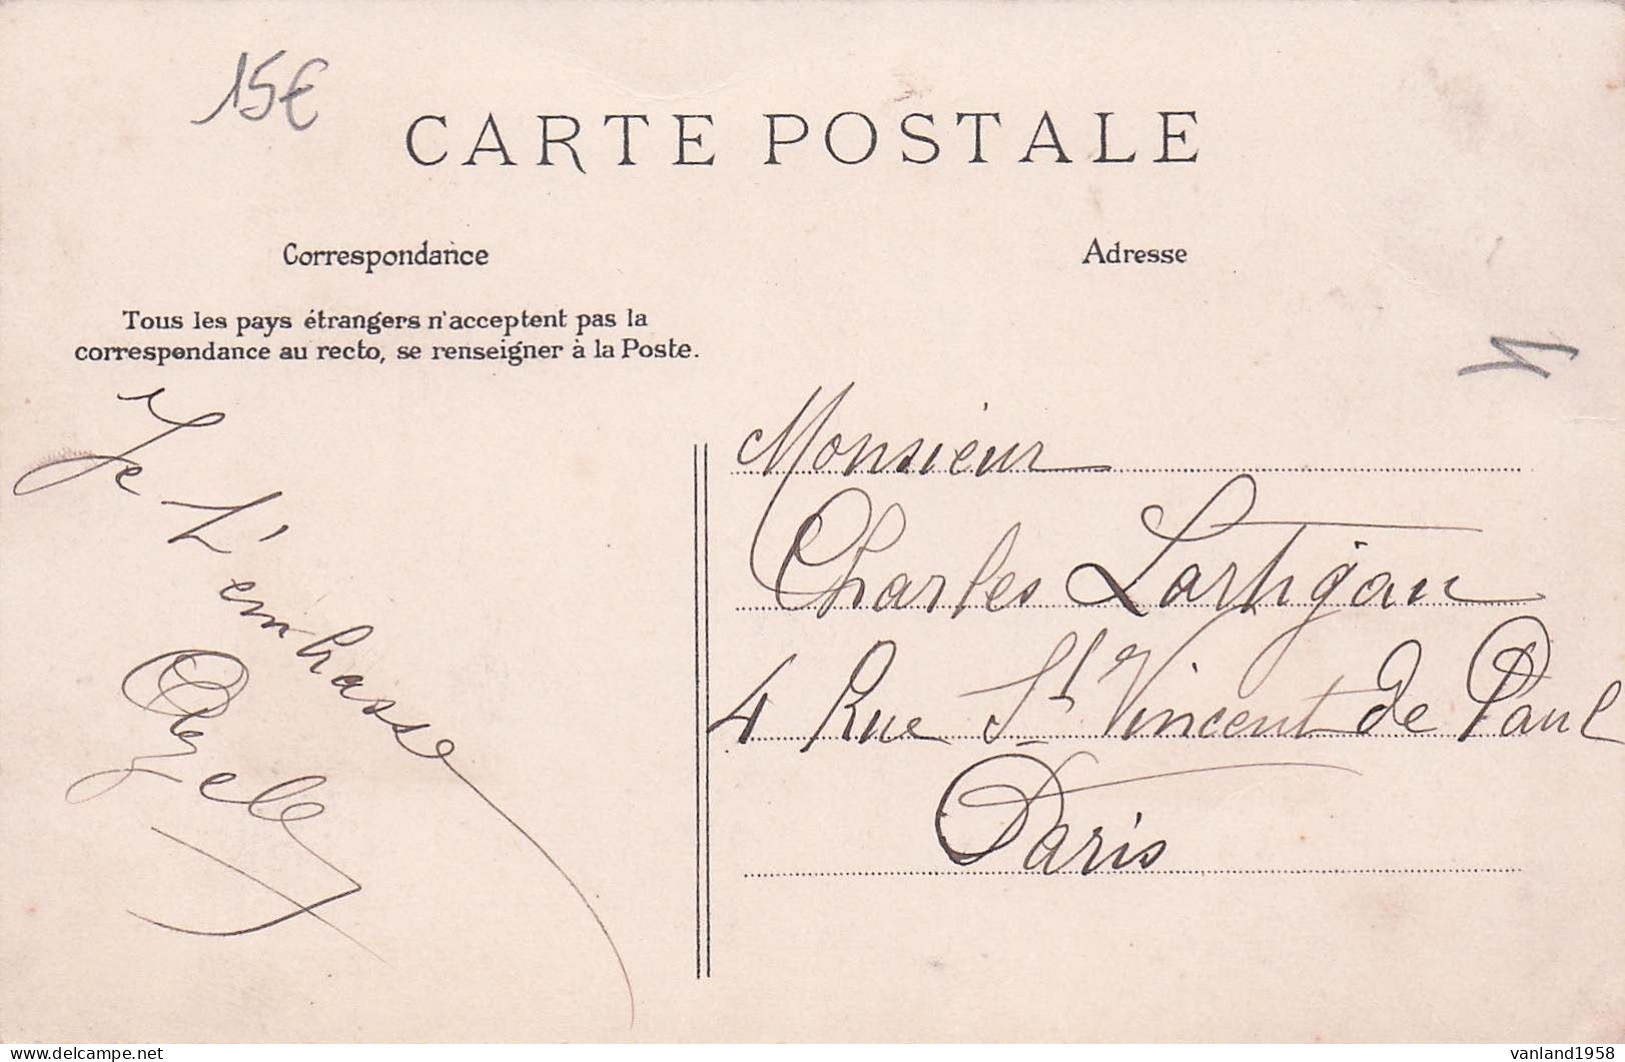 15€
CARTE POSTALE
Correspondance
Adresse
Tous les pays étrangers n'acceptent pas la
correspondance au recto, se renseigner à la Poste.
Je t'embrasse
Monsieur
Charles Lartigau
4 Rue St Vincent de Paul
Paris
delcampe.net
vanland1958